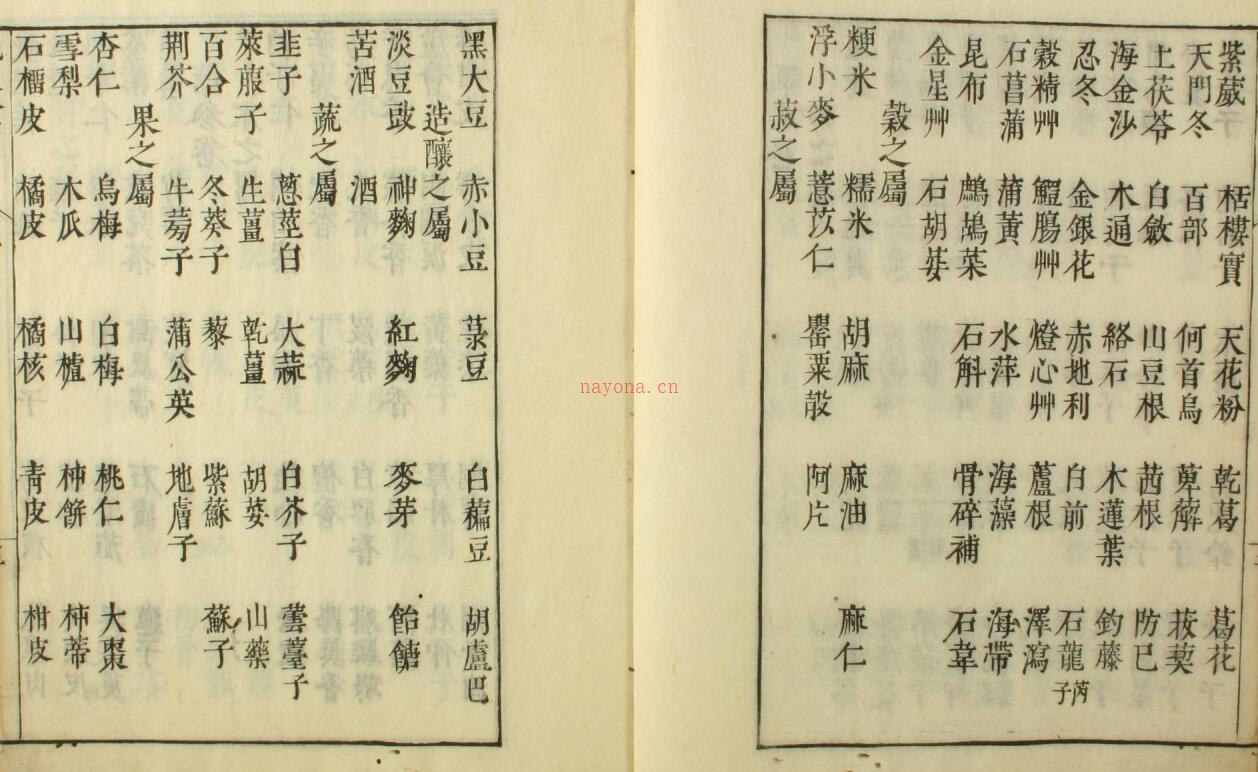 紫葳 栝樓實 天花粉 乾葛 葛花
天門冬 百部 何首烏 萆薢 菝葜
土茯苓 白斂 山豆根 茜根 防巳
海金沙 木通 絡石 木蓮葉 釣藤
忍冬 金銀花 赤地利 白前 石龍芮子
穀精艸 鱧腸艸 燈心艸 蘆根 澤瀉
石菖蒲 蒲黃 水萍 海藻 海帶
昆布 鷓鴣菜 石斛 骨碎補 石韋
金星艸 石胡荽
穀之屬
粳米 糯米 胡麻 麻油 麻仁
浮小麥 薏苡仁 罌粟殼 阿片
菽之屬
黑大豆 赤小豆 菉豆 白藊豆 胡盧巴
造釀之屬
淡豆豉 神麴 紅麴 麥芽 飴餹
苦酒 酒
蔬之屬
韭子 蔥莖白 大蒜 白芥子 蕓薹子
萊菔子 生薑 乾薑 胡荽 山藥
百合 冬葵子 藜 紫蘇 蘇子
荆芥 牛蒡子 蒲公英 地膚子
果之屬
杏仁 烏梅 白梅 桃仁 大棗
雪梨 木瓜 山樝 柿餅 柿蒂
石榴皮 橘皮 橘核 青皮 柑皮
nayona.cn